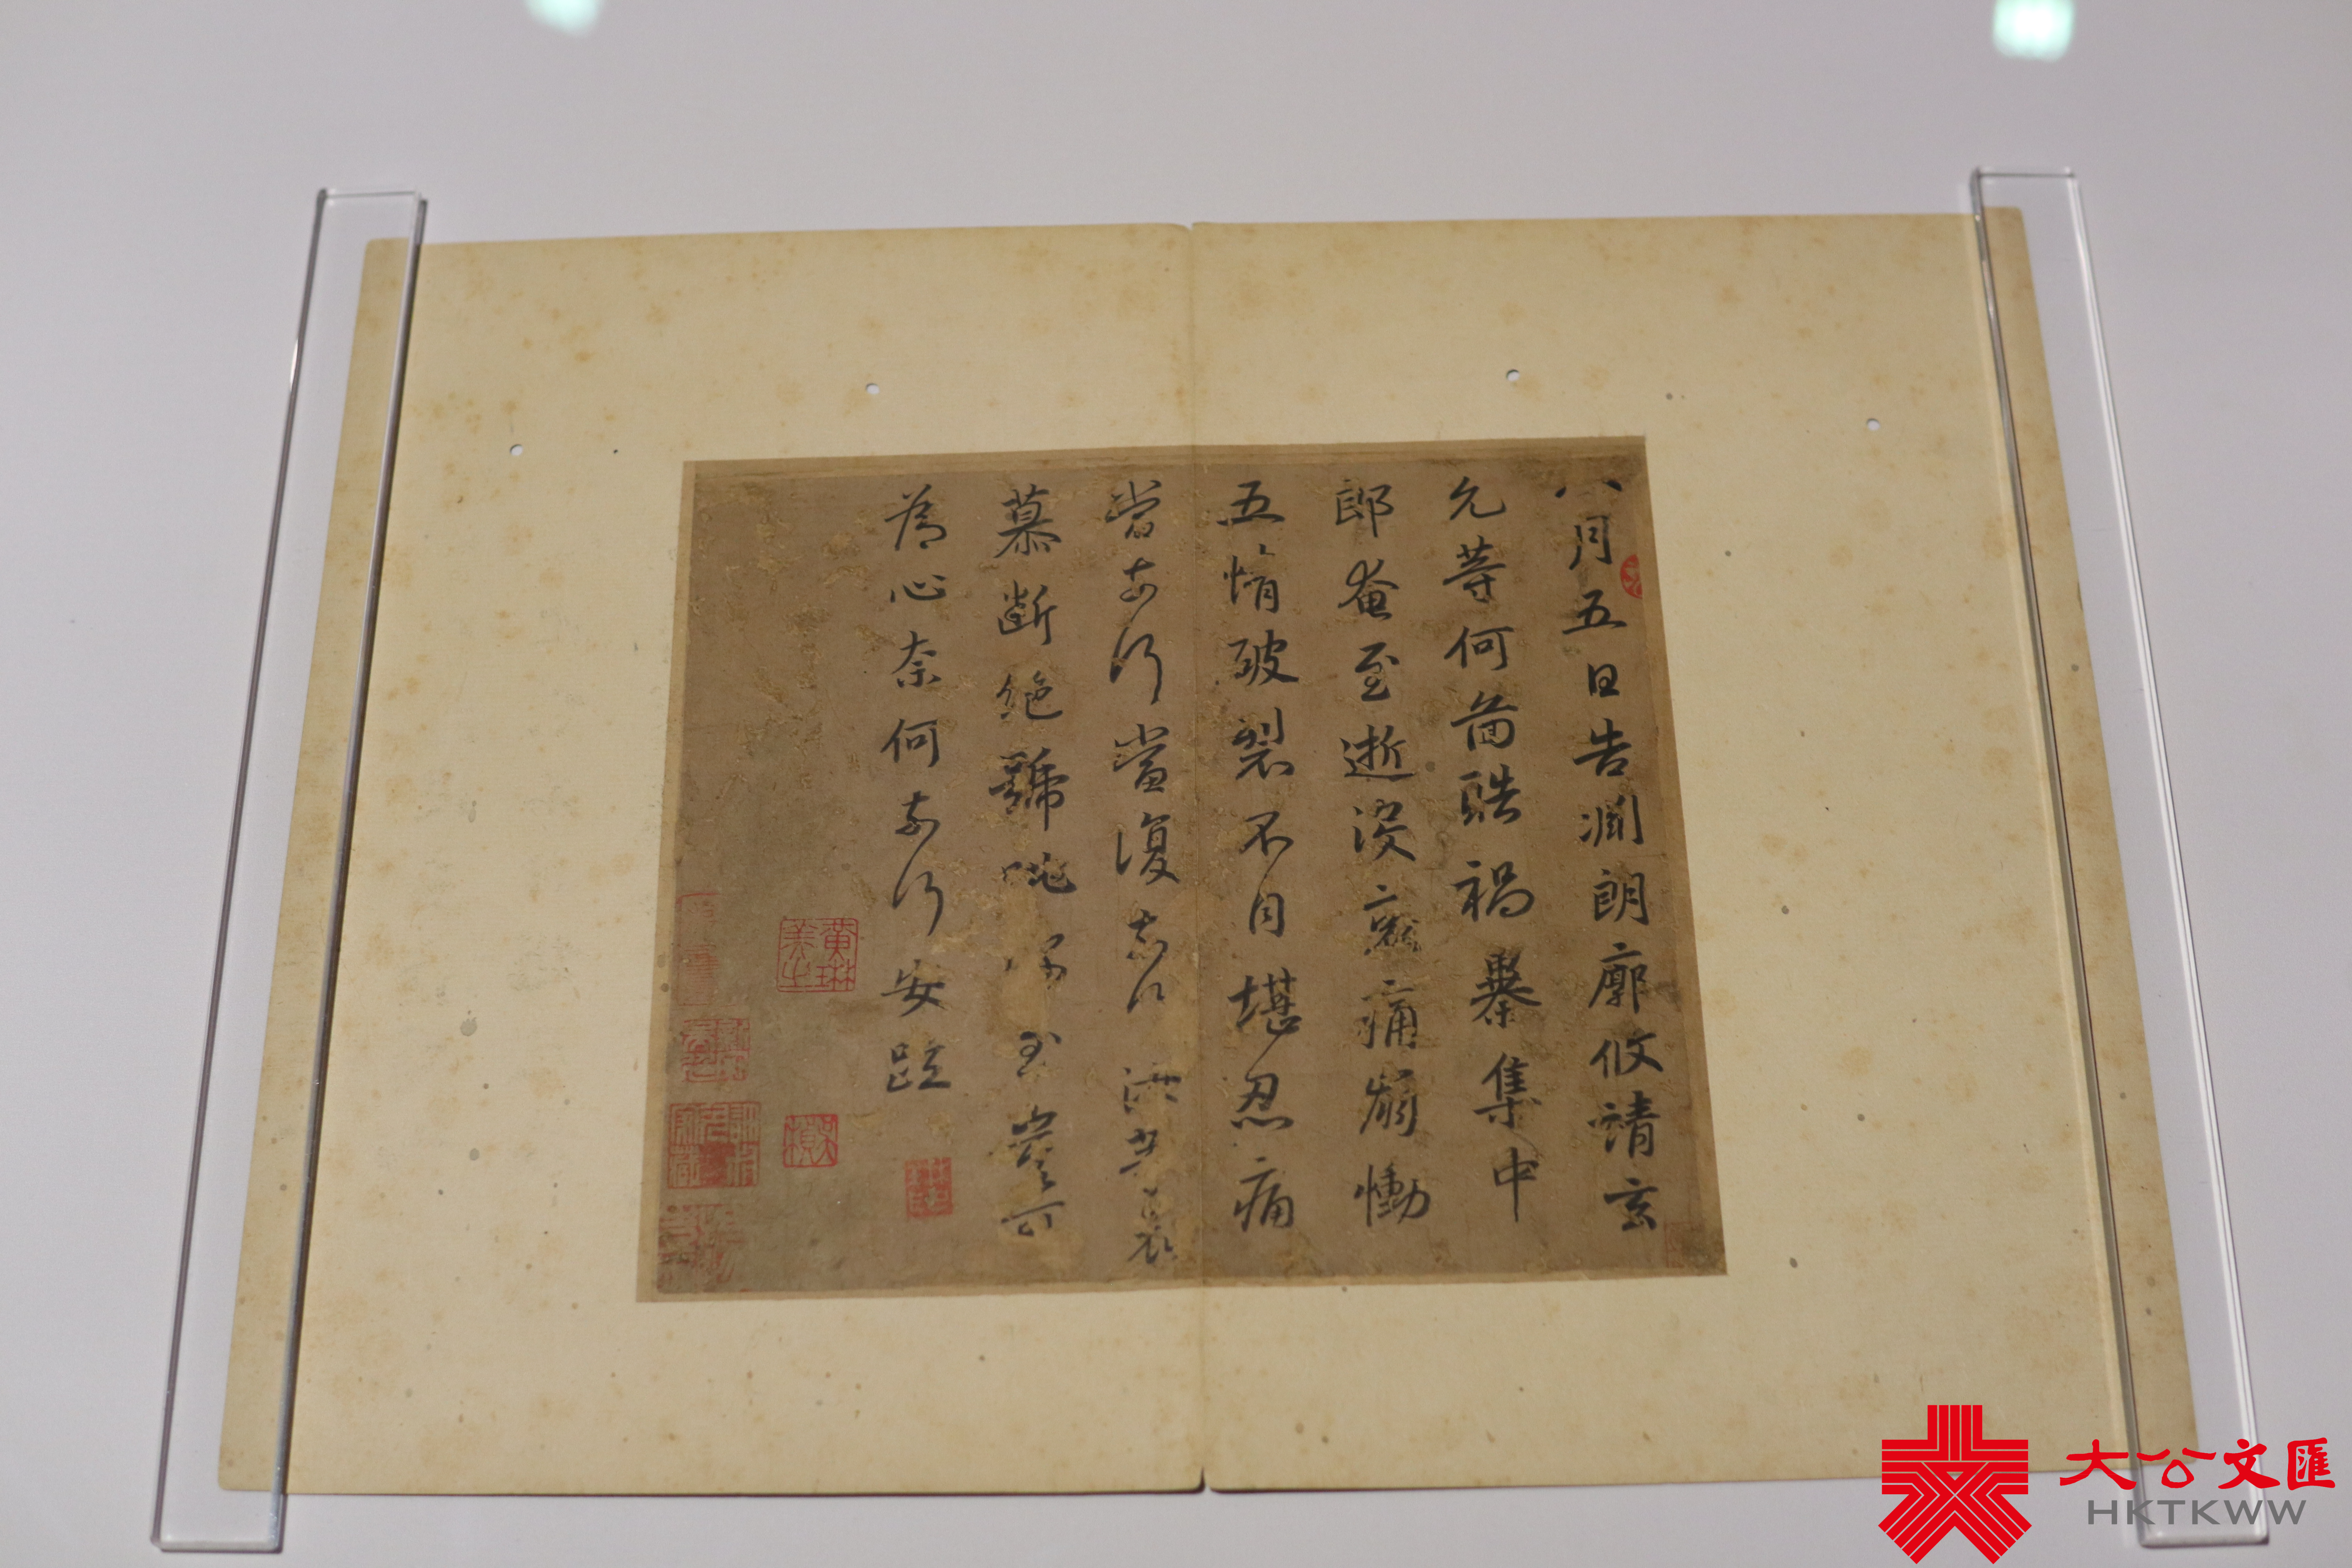 八月五日告淵朗廓攸靖玄
允等何圖酷禍暴集中
郎奄至逝沒哀痛崩慟
五情破裂不自堪忍痛
當奈何當復奈何汝等哀
慕斷絕號咷深至豈可
為心奈何奈何安疏
黃琳美之
大公文匯
HKTKWW